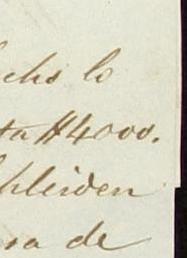 chs lo
ta $4000.
hleiden
sa de